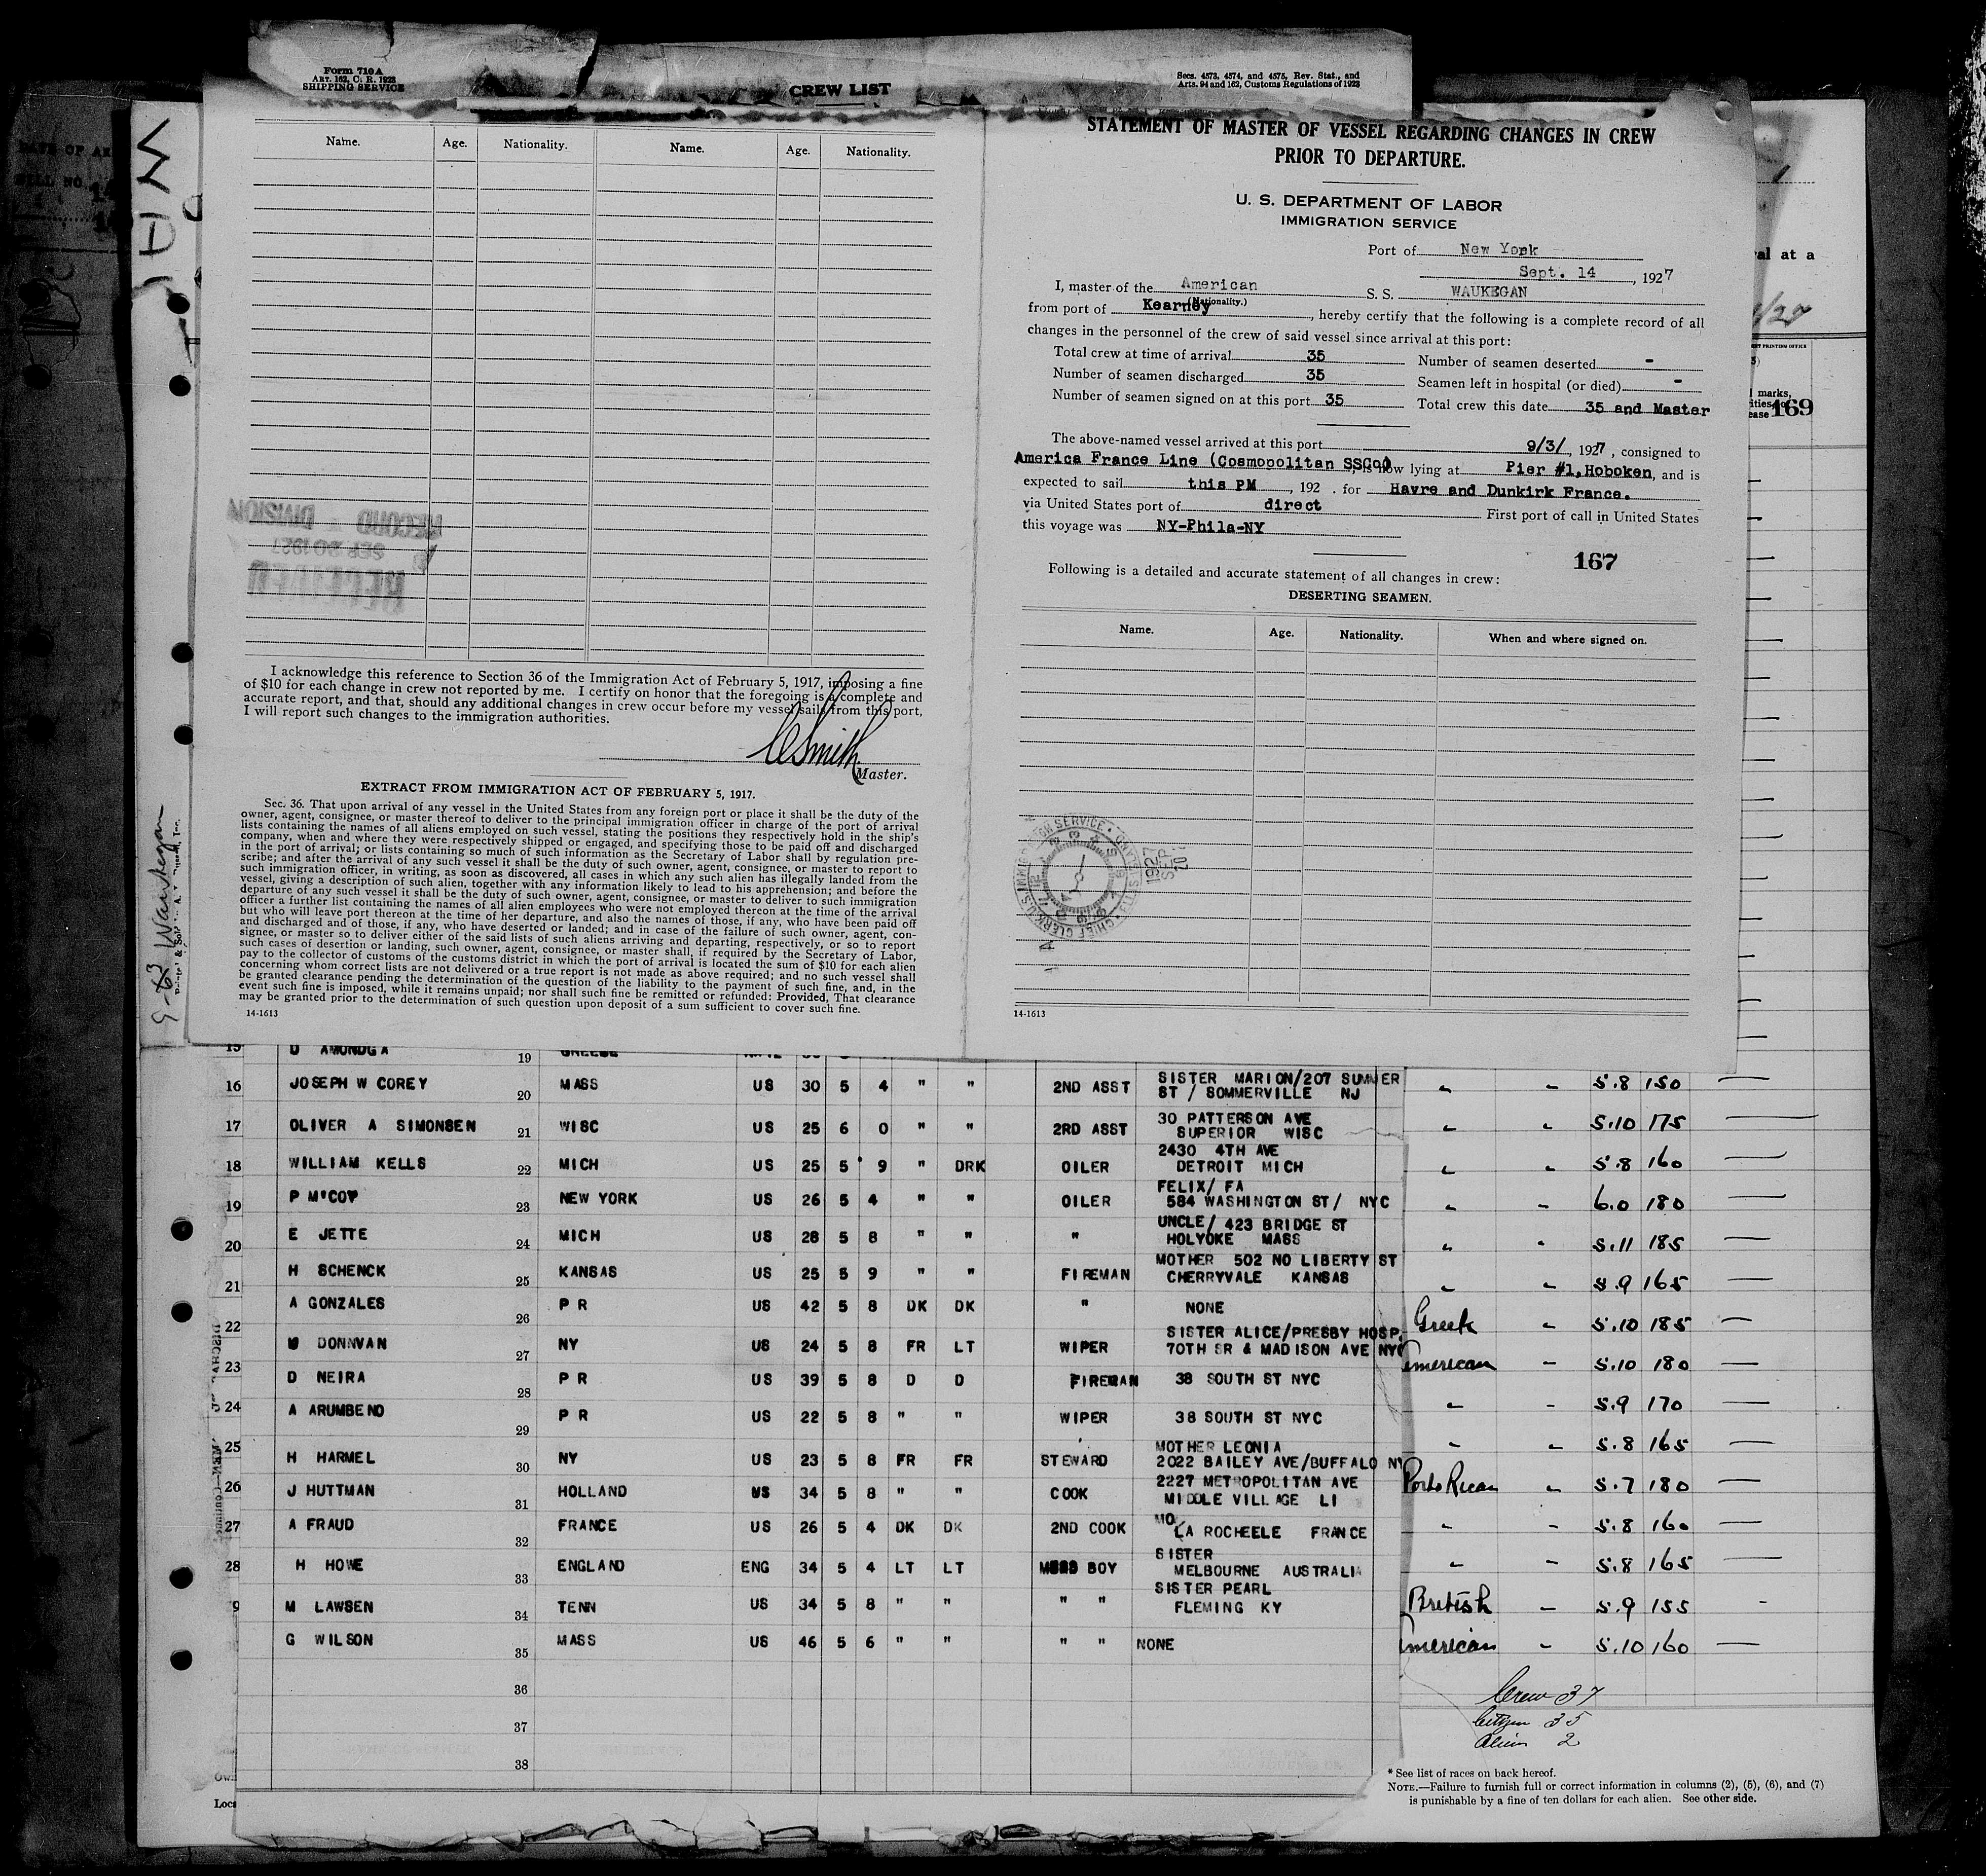 Form 710A
ART. 162, C. R. 1923
SHIPPING SERVICE
CREW LIST
Secs. 4573, 4574, and 4575, Rev. Stat., and
Arts. 94 and 162, Customs Regulations of 1923
Name. Age. Nationality. Name. Age. Nationality.
RECEIVED
SEP 20 1927
RECORD DIVISION
I acknowledge this reference to Section 36 of the Immigration Act of February 5, 1917, imposing a fine
of $10 for each change in crew not reported by me. I certify on honor that the foregoing is a complete and
accurate report, and that, should any additional changes in crew occur before my vessel sails from this port,
I will report such changes to the immigration authorities.
CSmith
Master.
EXTRACT FROM IMMIGRATION ACT OF FEBRUARY 5, 1917.
Sec. 36. That upon arrival of any vessel in the United States from any foreign port or place it shall be the duty of the
owner, agent, consignee, or master thereof to deliver to the principal immigration officer in charge of the port of arrival
lists containing the names of all aliens employed on such vessel, stating the positions they respectively hold in the ship's
company, when and where they were respectively shipped or engaged, and specifying those to be paid off and discharged
in the port of arrival; or lists containing so much of such information as the Secretary of Labor shall by regulation pre-
scribe; and after the arrival of any such vessel it shall be the duty of such owner, agent, consignee, or master to report to
such immigration officer, in writing, as soon as discovered, all cases in which any such alien has illegally landed from the
vessel, giving a description of such alien, together with any information likely to lead to his apprehension; and before the
departure of any such vessel it shall be the duty of such owner, agent, consignee, or master to deliver to such immigration
officer a further list containing the names of all alien employees who were not employed thereon at the time of the arrival
but who will leave port thereon at the time of her departure, and also the names of those, if any, who have been paid off
and discharged and of those, if any, who have deserted or landed; and in case of the failure of such owner, agent, con-
signee, or master so to deliver either of the said lists of such aliens arriving and departing, respectively, or so to report
such cases of desertion or landing, such owner, agent, consignee, or master shall, if required by the Secretary of Labor,
pay to the collector of customs of the customs district in which the port of arrival is located the sum of $10 for each alien
concerning whom correct lists are not delivered or a true report is not made as above required; and no such vessel shall
be granted clearance pending the determination of the question of the liability to the payment of such fine, and, in the
event such fine is imposed, while it remains unpaid; nor shall such fine be remitted or refunded: Provided, That clearance
may be granted prior to the determination of such question upon deposit of a sum sufficient to cover such fine.
14-1613
STATEMENT OF MASTER OF VESSEL REGARDING CHANGES IN CREW
PRIOR TO DEPARTURE.
U. S. DEPARTMENT OF LABOR
IMMIGRATION SERVICE
Port of New York
Sept. 14, 1927
I, master of the American S. S. WAUKEGAN
(Nationality.)
from port of Kearney, hereby certify that the following is a complete record of all
changes in the personnel of the crew of said vessel since arrival at this port:
Total crew at time of arrival 35 Number of seamen deserted -
Number of seamen discharged 35 Seamen left in hospital (or died) -
Number of seamen signed on at this port 35 Total crew this date 35 and Master
The above-named vessel arrived at this port 9/3/, 1927, consigned to
America France Line (Cosmopolitan SSCo), is now lying at Pier #1,Hoboken, and is
expected to sail this PM, 192 . for Havre and Dunkirk France.
via United States port of direct First port of call in United States
this voyage was NY-Phila-NY
167
Following is a detailed and accurate statement of all changes in crew:
DESERTING SEAMEN.
Name. Age. Nationality. When and where signed on.
14-1613
169
9-3 Waukegan
16 JOSEPH W COREY 20 MASS US 30 5 4 " " 2ND ASST SISTER MARION/207 SUMMER ST / SOMMERVILLE NJ 5.8 150
17 OLIVER A SIMONSEN 21 WISC US 25 6 0 " " 2RD ASST 30 PATTERSON AVE SUPERIOR WISC 5.10 175
18 WILLIAM KELLS 22 MICH US 25 5 9 " DRK OILER 2430 4TH AVE DETROIT MICH 5.8 160
19 P McCOY 23 NEW YORK US 26 5 4 " " OILER FELIX/ FA 584 WASHINGTON ST/ NYC 6.0 180
20 E JETTE 24 MICH US 28 5 8 " " " UNCLE/ 423 BRIDGE ST HOLYOKE MASS 5.11 185
21 H SCHENCK 25 KANSAS US 25 5 9 " " FIREMAN MOTHER 502 NO LIBERTY ST CHERRYVALE KANSAS 5.9 165
22 A GONZALES 26 P R US 42 5 8 DK DK " NONE Greek 5.10 185
DONNVAN 27 NY US 24 5 8 FR LT WIPER SISTER ALICE/PRESBY HOSP. 70TH SR & MADISON AVE NYC American 5.10 180
23 D NEIRA 28 P R US 39 5 8 D D FIREMAN 38 SOUTH ST NYC
24 A ARUMBEND 29 P R US 22 5 8 " " WIPER 38 SOUTH ST NYC 5.9 170
25 H HARMEL 30 NY US 23 5 8 FR FR STEWARD MOTHER LEONIA 2022 BAILEY AVE/BUFFALO NY 5.8 165
26 J HUTTMAN 31 HOLLAND US 34 5 8 " " COOK 2227 METROPOLITAN AVE MIDDLE VILLAGE LI Porto Rican 5.7 180
27 A FRAUD 32 FRANCE US 26 5 4 DK DK 2ND COOK MO LA ROCHEELE FRANCE 5.8 160
28 H HOWE 33 ENGLAND ENG 34 5 4 LT LT MESS BOY SISTER MELBOURNE AUSTRALIA 5.8 165
9 M LAWSEN 34 TENN US 34 5 8 " " " " SISTER PEARL FLEMING KY British 5.9 155
G WILSON 35 MASS US 46 5 6 " " " " NONE American 5.10 160
36
37
38
Crew 37
Citizen 35
Alien 2
* See list of races on back hereof.
NOTE.—Failure to furnish full or correct information in columns (2), (5), (6), and (7)
is punishable by a fine of ten dollars for each alien. See other side.